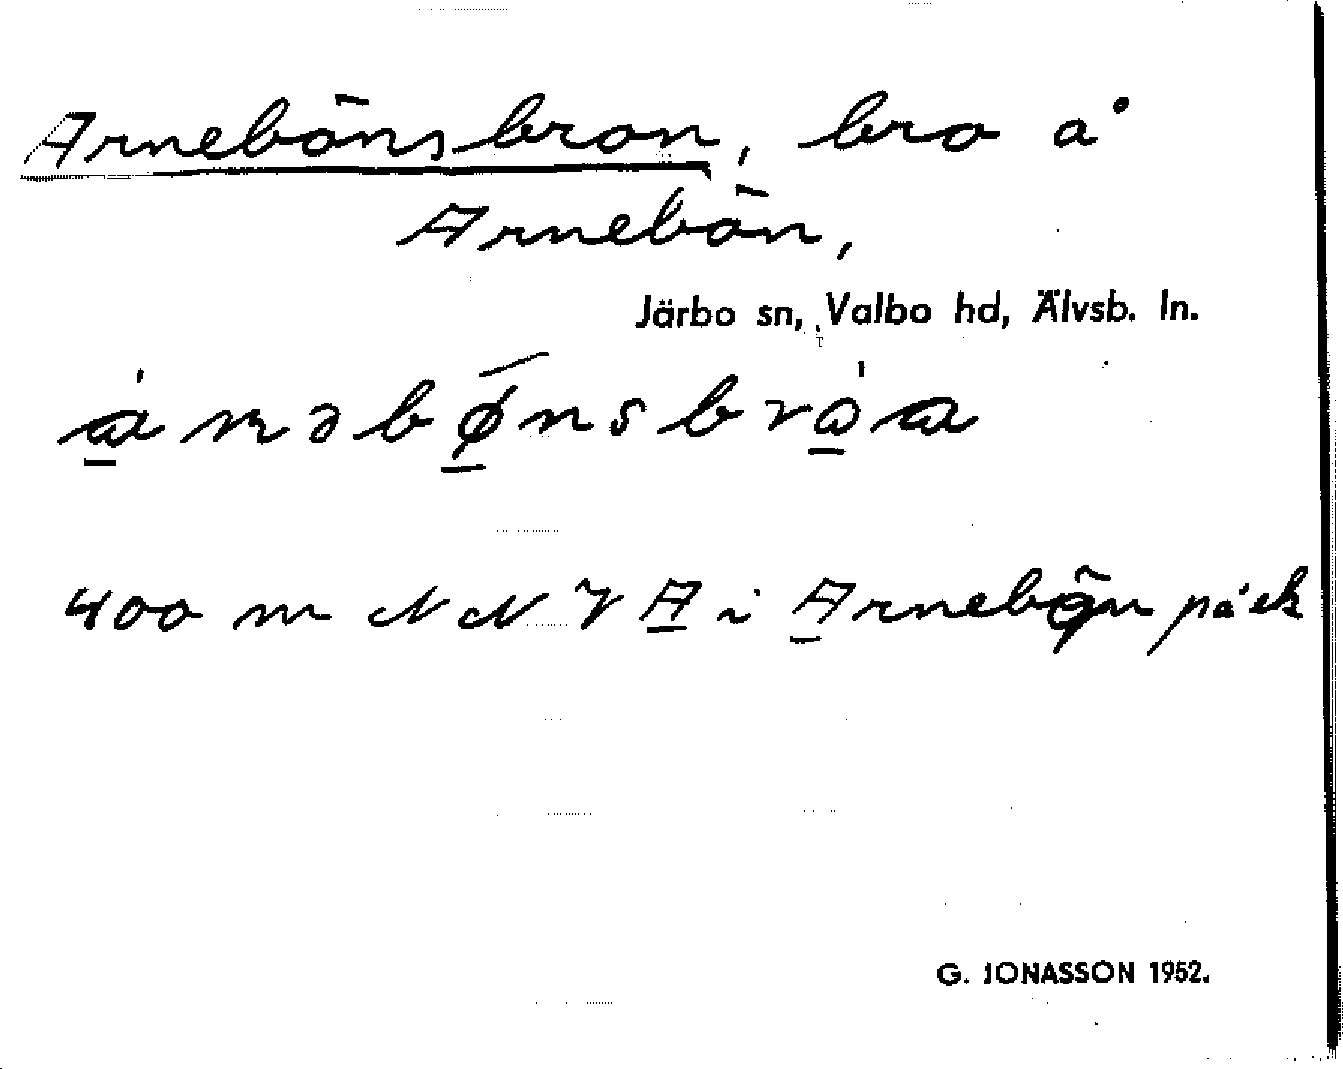 Arnebönsbron, bro å
Arnebön,
Järbo sn, Valbo hd, Älvsb. ln.
ánəbø̄nsbróa
400 m NNV A i Arnebön på ek
G. JONASSON 1952.